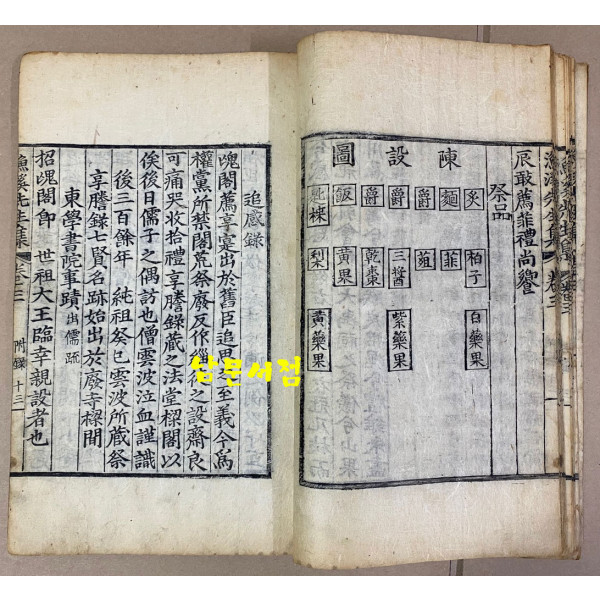 漁溪先生集 卷之三
辰敢薦菲禮尚饗
祭品
陳設圖
炙 柏子 白藥果
麵 菲
爵 葅
爵 三醬 紫藥果
爵 乾棗
飯 黃果
匙楪 梨 黃藥果
追感錄
魂閣薦享寔出於舊臣追思之至義今爲
權黨所禁閣荒祭廢反作緇徒之設齋良
可痛哭收拾禮享謄錄藏之法堂樑閣以
俟後日儒子之偶訪也僧雲波泣血謹識
後三百餘年 純祖癸巳雲波所藏祭
享謄錄七賢名跡始出於廢寺樑間
東學書院事蹟出儒疏
招魂閣即 世祖大王臨幸親設者也
漁溪先生集 卷之三 附錄 十三
남문서점